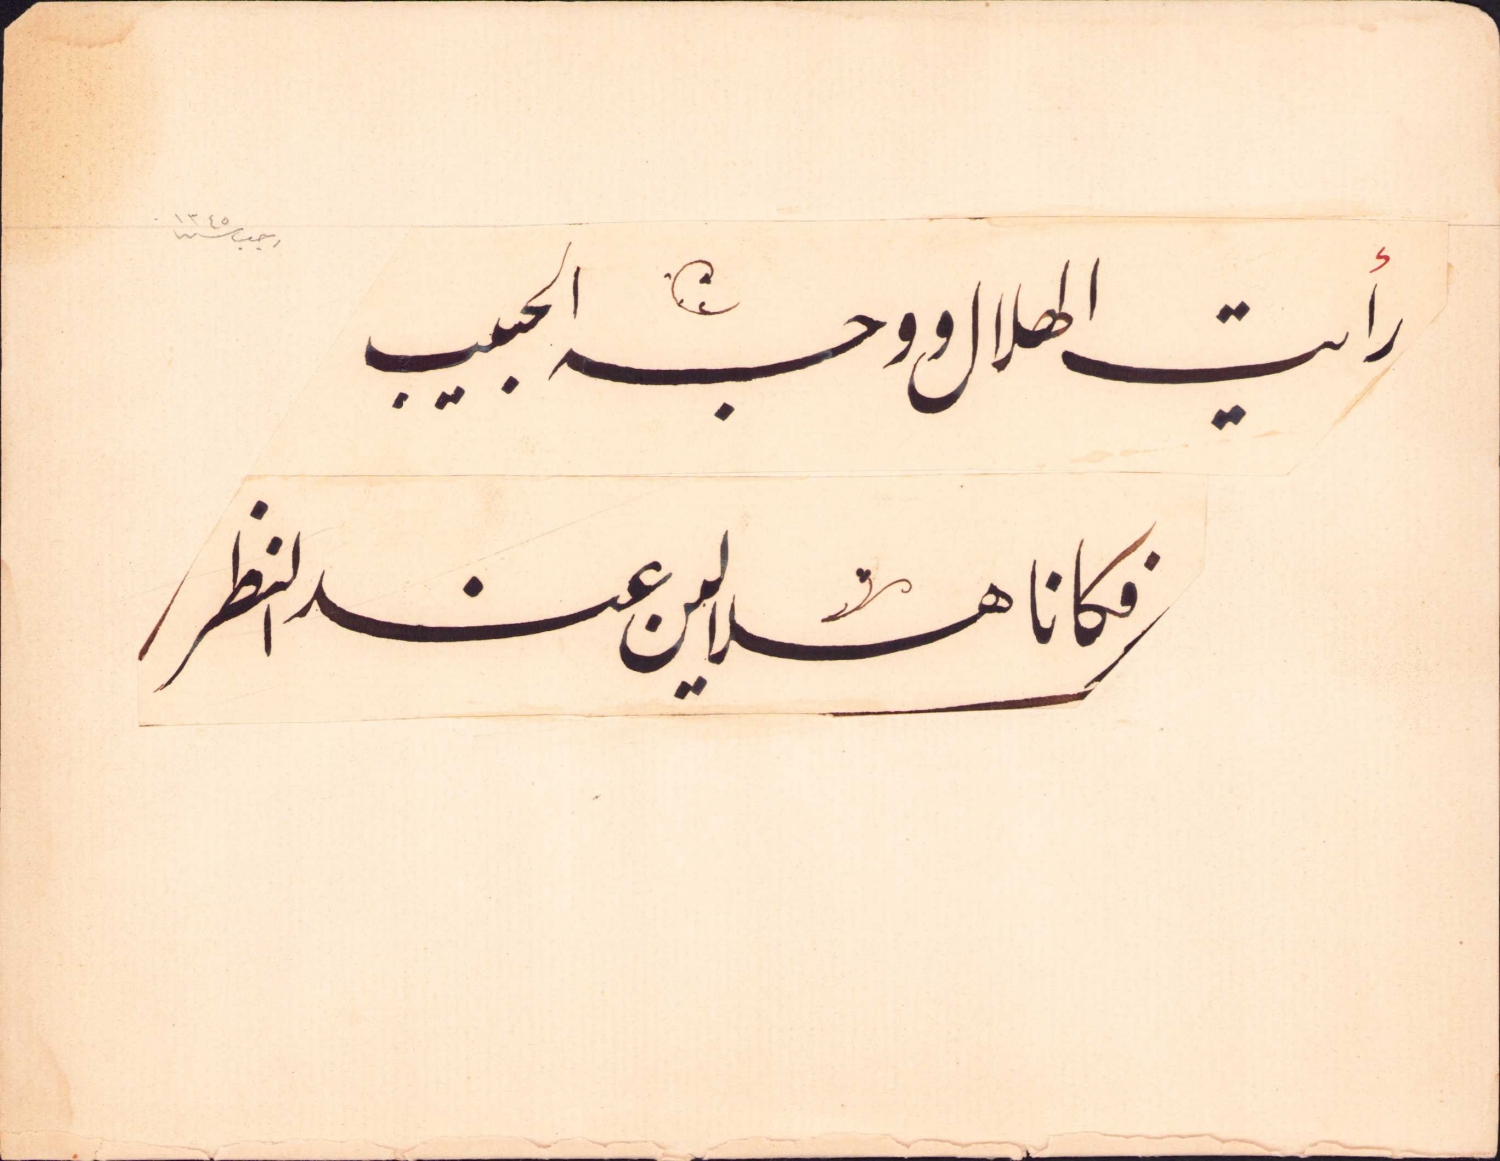 ١٣٤٥
رجب سنة
رأيت الهلال ووجه الحبيب
فكانا هلالين عند النظر